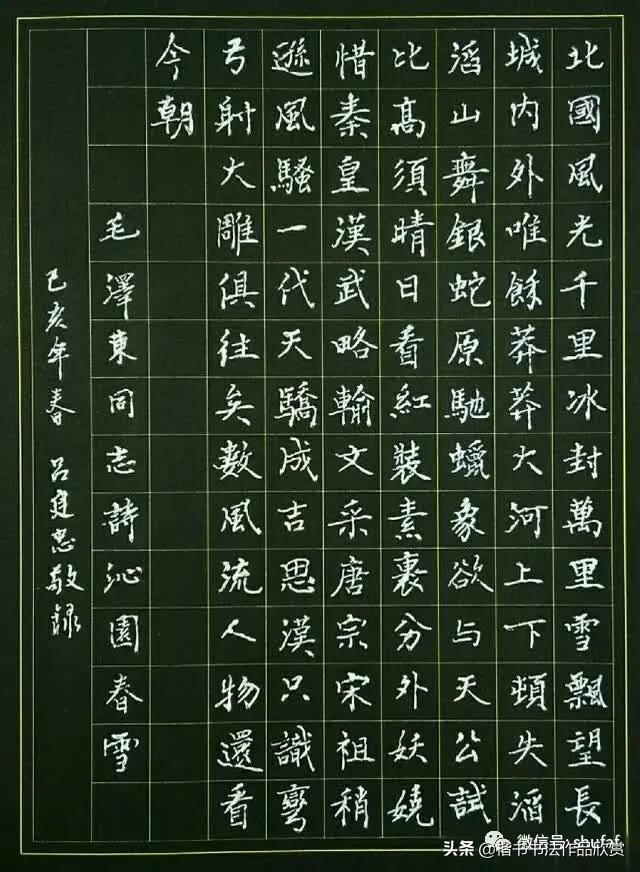 北國風光千里冰封萬里雪飄望長
城内外唯餘莽莽大河上下頓失滔
滔山舞銀蛇原馳蠟象欲与天公試
比高須晴日看紅裝素裹分外妖嬈
惜秦皇漢武略輸文采唐宗宋祖稍
遜風騷一代天驕成吉思漢只識彎
弓射大雕俱往矣數風流人物還看
今朝
毛澤東同志詩沁園春雪
己亥年春 吕忠敬録
微信号: shufaf
头条 @楷书书法作品欣赏